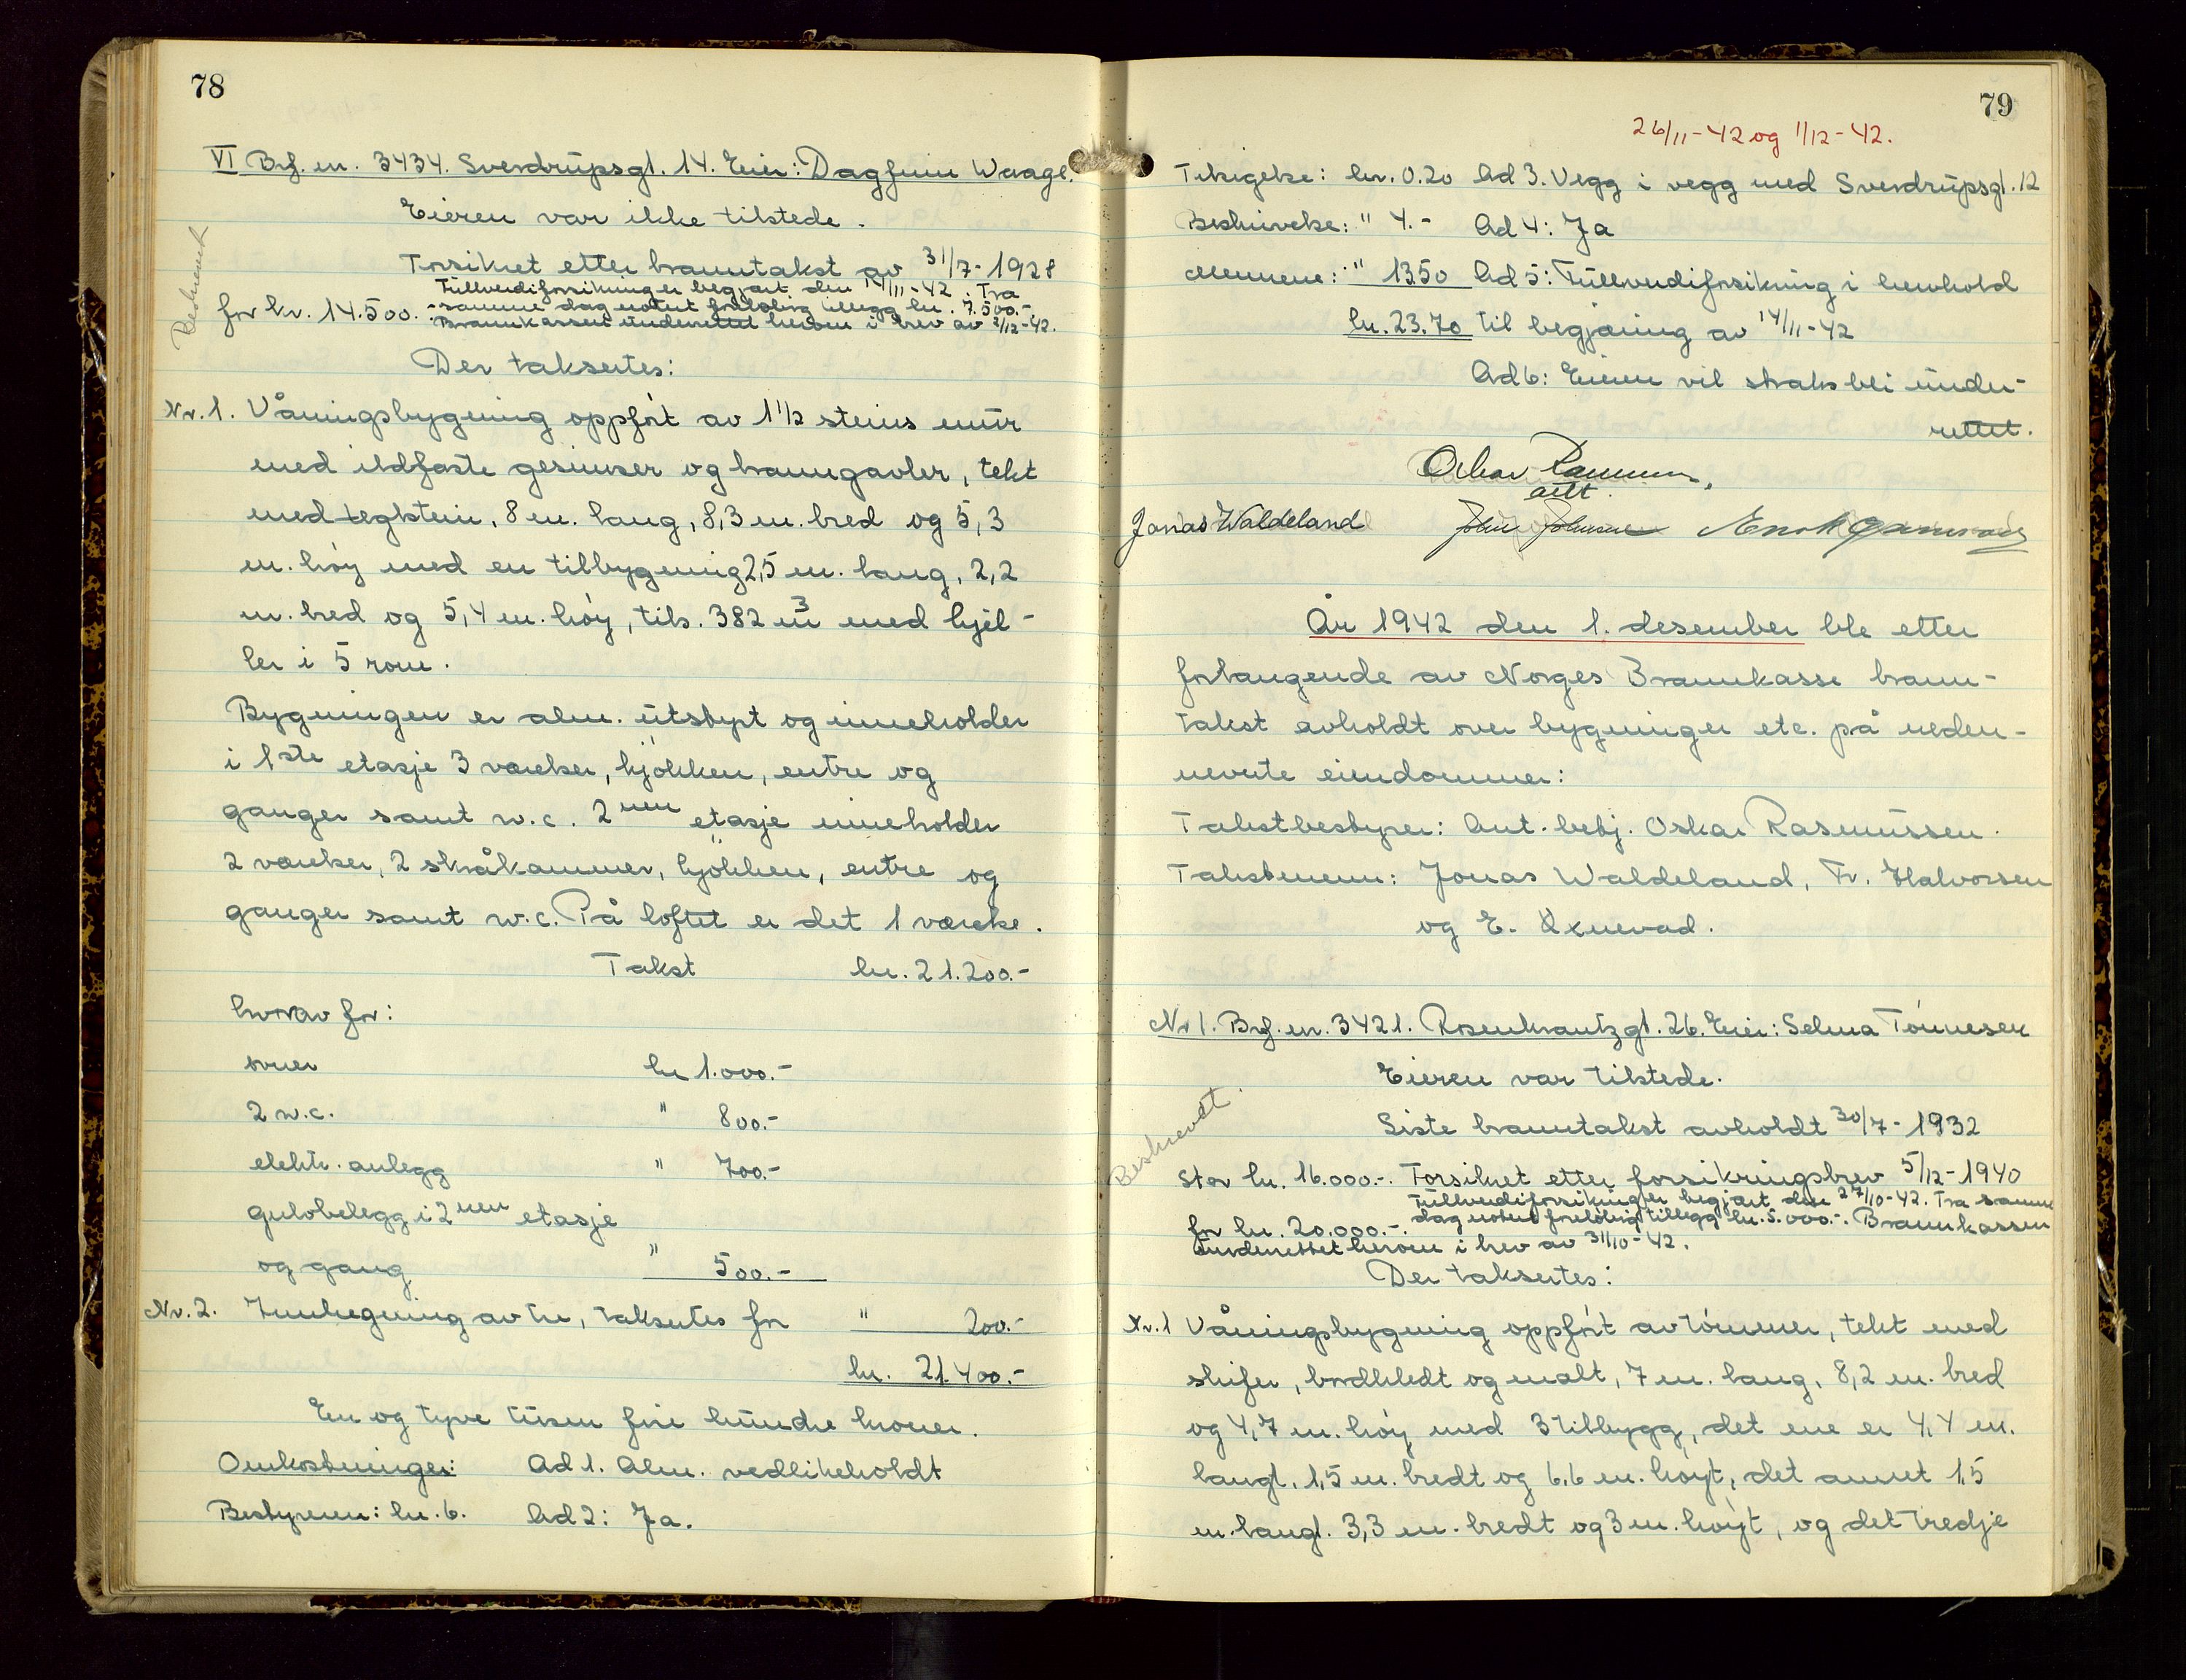 78
VI Brf. nr. 3434. Sverdrupsgt. 14. Eier: Dagfinn Waage.
Eieren var ikke tilstede.
Forsikret etter branntakst av 31/7-1928
Fullverdiforsikring er begjært den 14/11-42. Fra
samme dag notert foreløbig tillegg kr. 7.500.-
for kr. 14.500.-
Brannkassen underrettet herom i brev av 2/12-42.
Beskrevet
Der taksertes:
Nr. 1. Våningsbygning oppført av 1 1/2 steins mur
med ildfaste gesimser og branngavler, tekt
med tegkstein, 8 m. lang, 8,3 m. bred og 5,3
m. høy med en tilbygning 2,5 m. lang, 2,2
m. bred og 5,4 m. høy, tils. 382 m3 med kjel-
ler i 5 rom.
Bygningen er alm. utstyrt og inneholder
i 1ste etasje 3 værelser, kjøkken, entre og
ganger samt w.c. 2nen etasje inneholder
2 værelser, 2 skråkammer, kjøkken, entre og
ganger samt w.c. På loftet er det 1 værelse.
Takst kr. 21.200.-
hvorav for:
ovner kr 1.000.-
2 w.c. " 800.-
elektr. anlegg " 700.-
gulvbelegg i 2nen etasje
og gang " 500.-
Nr. 2. Innhegning av tre, taksertes for " 200.-
kr. 21.400.-
En og tyve tusen fire hundre kroner.
Omkostninger: Ad 1. Alm. vedlikeholdt
Bestyreren: kr. 6. Ad 2: Ja.
79
26/11-42 og 1/12-42.
Tilsigelse: kr. 0.20 Ad 3. Vegg i vegg med Sverdrupsgt. 12
Beskrivelse: " 4.- Ad 4: Ja
Mennene: " 13.50 Ad 5: Fullverdiforsikring i henhold
kr. 23.70 til begjæring av 14/11-42
Ad 6: Eieren vil straks bli under-
rettet.
Oskar Rasmussen,
aut.
Jonas Waldeland John Johnsen
År 1942 den 1. desember ble etter
forlangende av Norges Brannkasse brann-
takst avholdt over bygninger etc. på neden-
nevnte eiendommer:
Takstbestyrer: Aut. betj. Oskar Rasmussen.
Takstmenn: Jonas Waldeland, Fr. Halvorsen
og E. Oxnevad.
Nr 1. Brf. nr. 3421. Rosenkrantzgt. 26. Eier: Selma Tönnesen
Eieren var tilstede.
Siste branntakst avholdt 30/7-1932
Beskrevet.
stor kr. 16.000.-. Forsikret etter forsikringsbrev 5/12-1940
Fullverdiforsikring er begjært den 27/10-42. Fra samme
dag notert foreløbig tillegg kr. 5.000.-. Brannkassen
for kr. 20.000.-.
underrettet herom i brev av 31/10-42.
Der taksertes:
Nr. 1 Våningsbygning oppført av tömmer, tekt med
skifer, bordkledt og malt, 7 m. lang, 8,2 m. bred
og 4,7 m. høy med 3 tilbygg, det ene er 4,4 m.
langt. 1,5 m. bredt og 6,6 m. høyt, det annet 1,5
m. langt. 3,3 m. bredt og 3 m. høyt, og det tredje